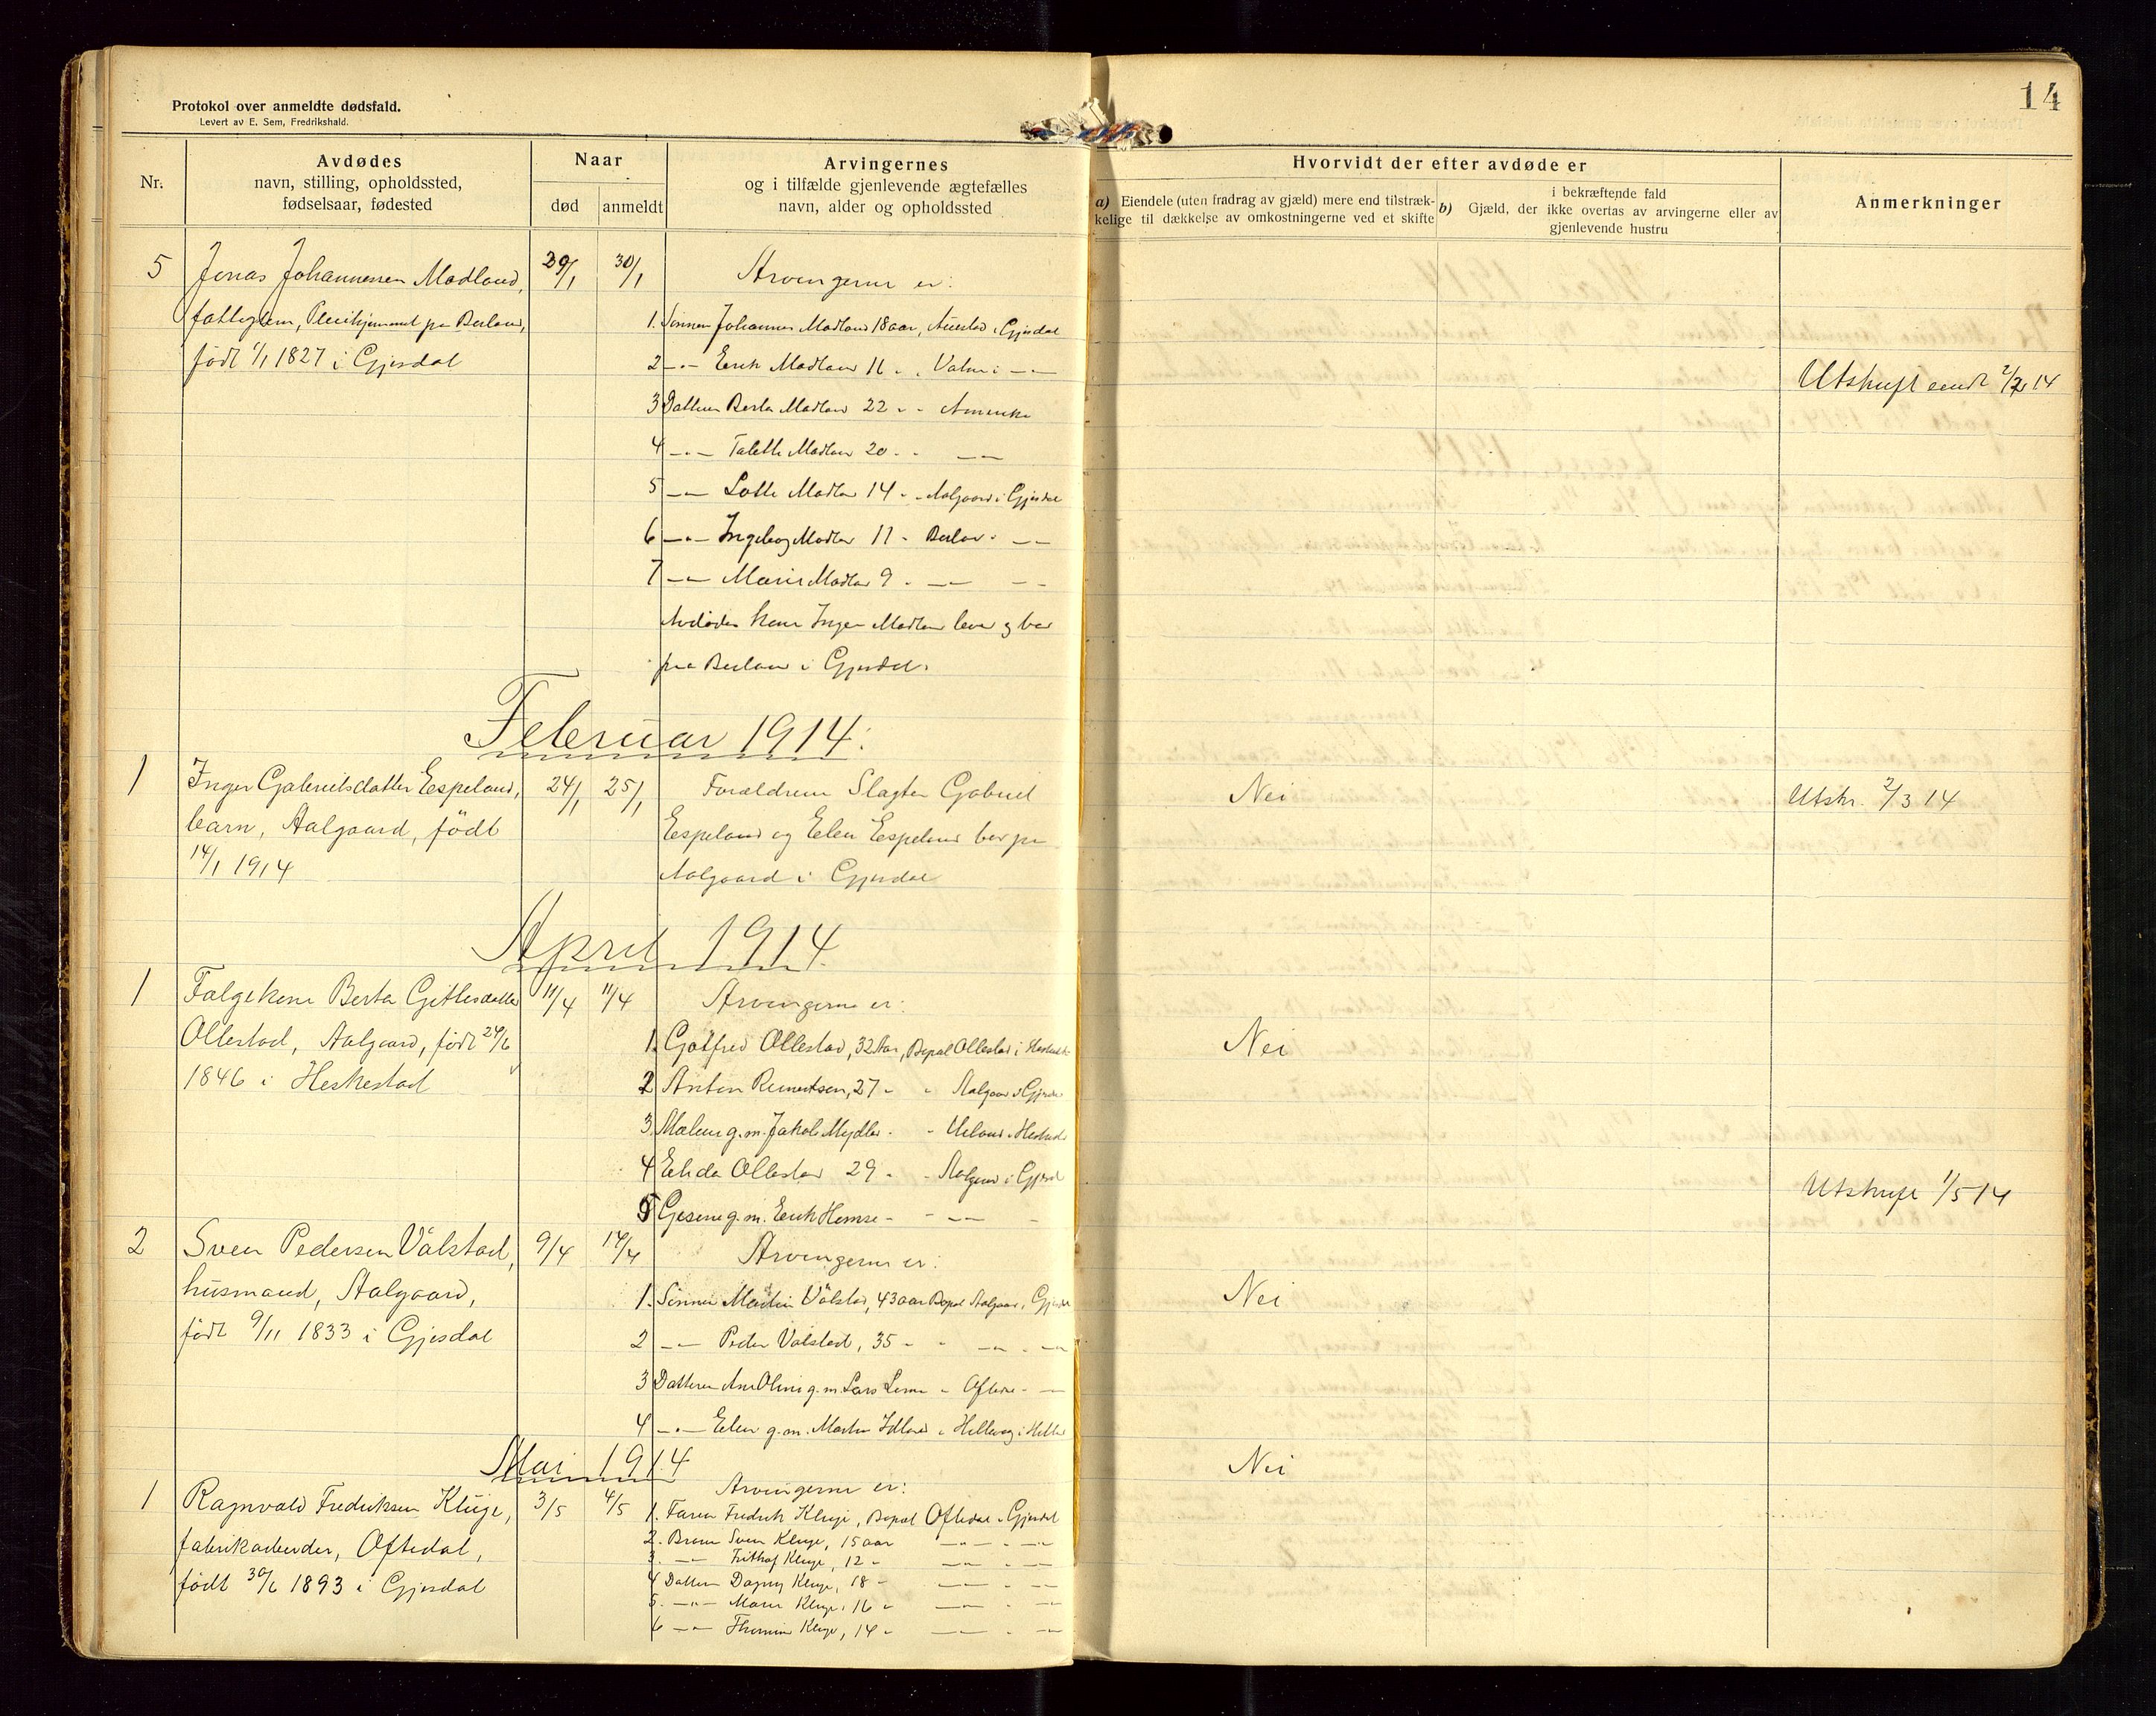 Protokol over anmeldte dødsfald.
Levert av E. Sem, Fredrikshald.
14
Nr.
Avdødes
navn, stilling, opholdssted,
fødselsaar, fødested
Naar
død
anmeldt
Arvingernes
og i tilfælde gjenlevende ægtefælles
navn, alder og opholdssted
Hvorvidt der efter avdøde er
a) Eiendele (uten fradrag av gjæld) mere end tilstræk-
kelige til dækkelse av omkostningerne ved et skifte
i bekræftende fald
b) Gjæld, der ikke overtas av arvingerne eller av
gjenlevende hustru
Anmerkninger
5 Jonas Johannessen Madland, 29/1 30/1 Arvingerne er:
fattiglem, Pleiehjemmet paa Berland, 1. Sønnen Johannes Madland 18 aar, Auestad i Gjesdal
født 1/1 1827 i Gjesdal 2 -"- Erik Madland 16 " " i -"-
Utskrift sendt 2/2 14
3 Datteren Berta Madland 22 " " Amerika
4 -"- Madland 20 " " -"-
5 -"- Lotte Madland 14 " " Aalgaard i Gjesdal
6 -"- Ingeborg Madland 11 " Berland " -"-
7 -"- Marie Madland 9 " -"- -"-
Avdødes kone Inger Madland lever og bor
paa Berland i Gjesdal.
Februar 1914.
1 Inger Gabrielsdatter Espeland, 24/1 25/1 Forældrene Slagter Gabriel Nei Utskr. 2/3 14
barn, Aalgaard, født Espeland og Elen Espeland bor paa
14/1 1914 Aalgaard i Gjesdal
April 1914.
1 Folgekone Berta Gitlesdatter 11/4 11/4 Arvingerne er:
Ollestad, Aalgaard, født 24/6 1. Gotfred Ollestad, 32 Aar, Bopæl Ollestad i Heskestad Nei
1846 i Heskestad 2 Anton Reinertsen, 27 " " Aalgaard i Gjesdal
3. Malene g.m. Jakob " " Ueland i Heskestad
4 Elida Ollestad 29 " " Aalgaard i Gjesdal
Utskrift 1/5 14
5 Gesine g.m. Erik " " -"- "
2 Sven Pedersen Válstad, 9/4 14/4 Arvingerne er:
husmand, Aalgaard, 1. Sønnen Martin Válstad, 43 aar Bopæl Aalgaard i Gjesdal Nei
født 9/11 1833 i Gjesdal 2 -"- Peder Válstad, 35 " " -"- " -"-
3 Datteren Ane Oline g.m. Lars " Oftedal " -"-
4 -"- Elen g.m. Martin " i
Mai 1914
Nei
1 Ragnvald Fredriksen Kluge, 3/5 4/5 Arvingerne er:
fabrikarbeider, Oftedal, 1. Faren Fredrik Kluge, Bopæl Oftedal i Gjesdal
født 30/6 1893 i Gjesdal 2. Broren Sven Kluge, 15 aar -"- " -"-
3. -"- Fritjof Kluge, 12 " -"- " -"-
4 Datteren Dagny Kluge, 18 " -"- " -"-
5. -"- Marie Kluge, 16 " -"- " -"-
6 -"- Kluge, 14 " -"- " -"-